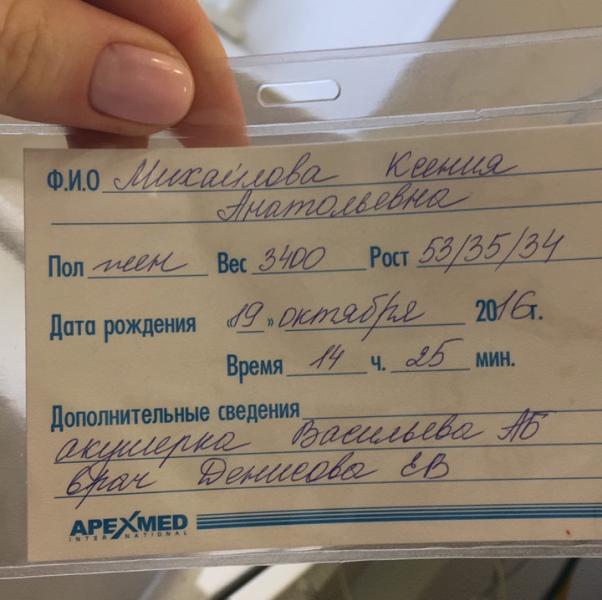 Ф.И.О Михайлова Ксения
Анатольевна
Пол жен Вес 3400 Рост 53/35/34
Дата рождения «19» октября 2016г.
Время 14 ч. 25 мин.
Дополнительные сведения
акушерка Васильева АБ
врач Денисова ЕВ
APEXMED
INTERNATIONAL